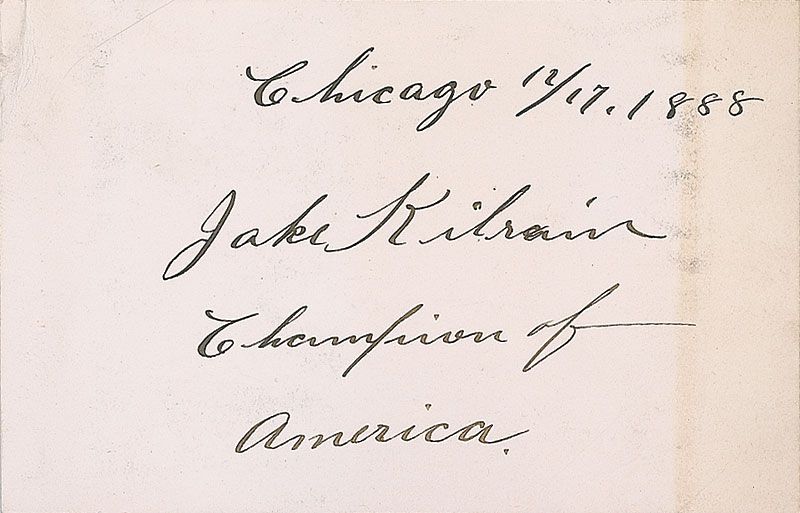 Chicago 12/17. 1888
Jake Kilrain
Champion of
America.